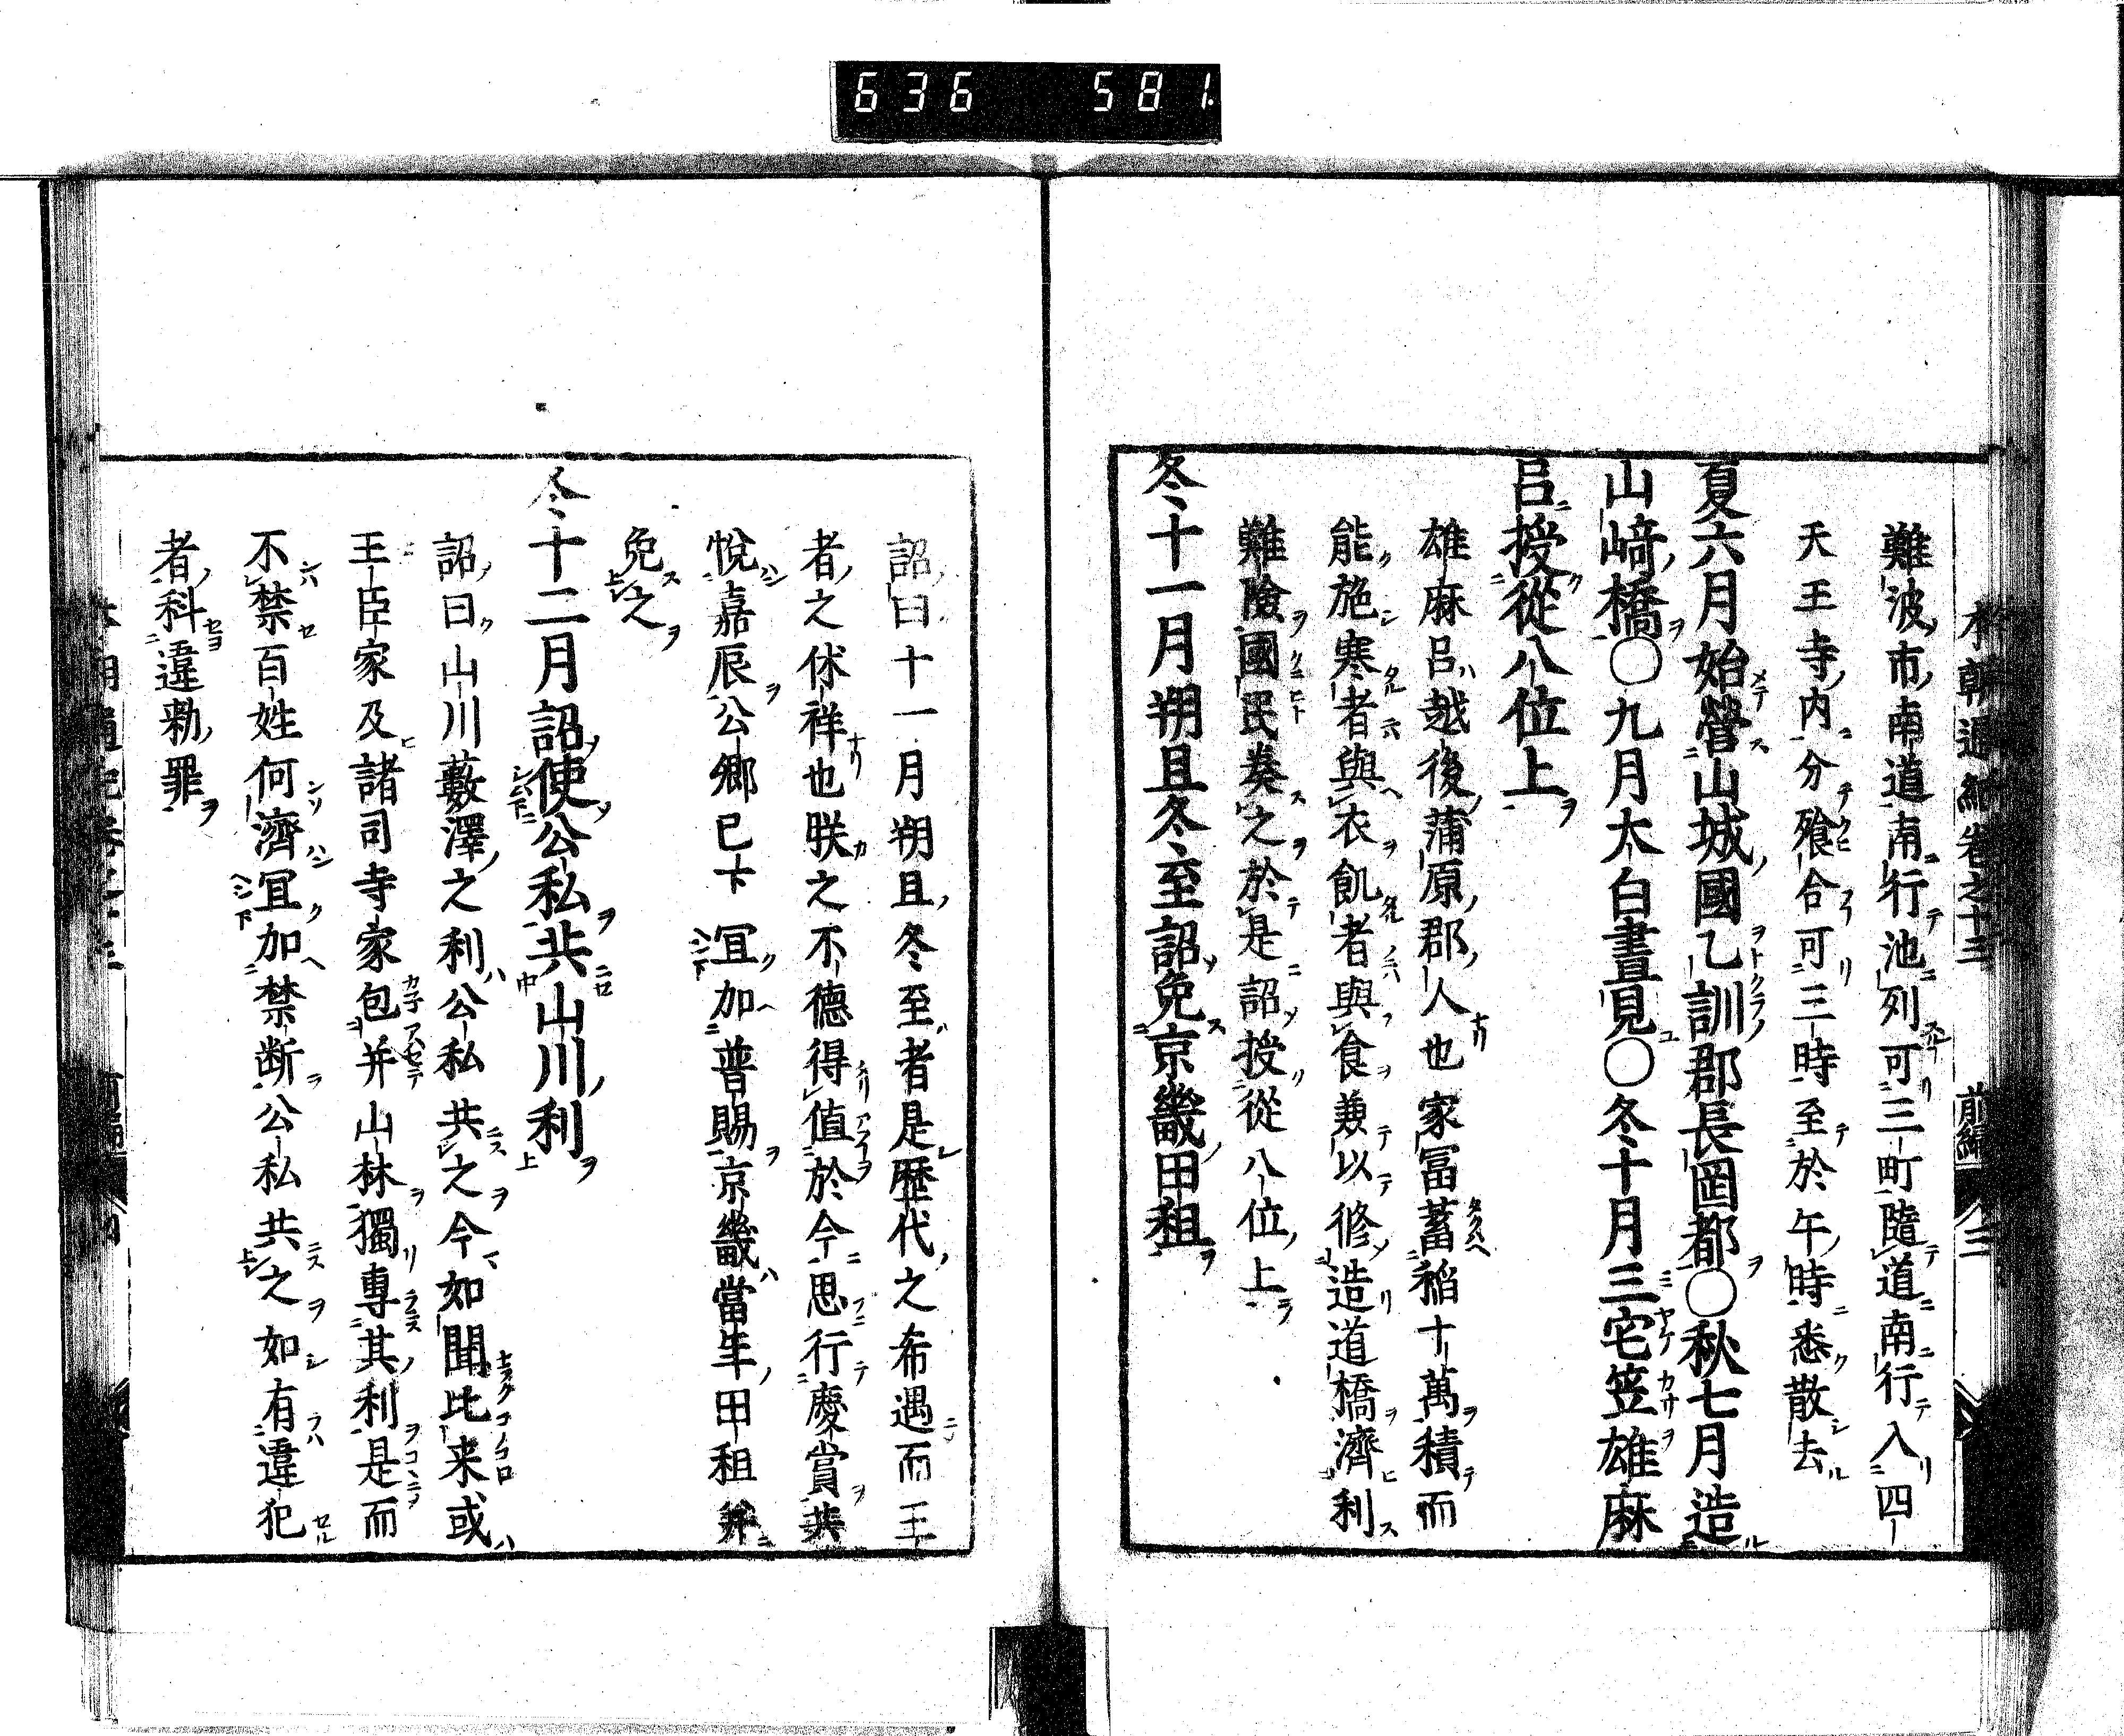 636 581
本朝通紀卷之十三 前編 三
難波市南道南行池列可三町隨道南行入四
天王寺内分飱合可三時至於午時悉散去
夏六月始營山城國乙訓郡長岡都○秋七月造
山﨑橋○九月太白晝見○冬十月三宅笠雄麻
呂授從八位上
雄麻呂越後蒲原郡人也家冨蓄稲十萬積而
能施寒者與衣飢者與食兼以修造道橋濟利
難險國民奏之於是詔授從八位上
冬十一月朔旦冬至詔免京畿田租
詔曰十一月朔旦冬至者是歴代之希遇而王
者之休祥也朕之不德得値於今思行慶賞共
悅嘉辰公卿已下冝加普賜京畿當年田租并
免之
冬十二月詔使公私共山川利
詔曰山川藪澤之利公私共之今如聞比来或
王臣家及諸司寺家包并山林獨專其利是而
不禁百姓何濟冝加禁断公私共之如有違犯
者科違勅罪